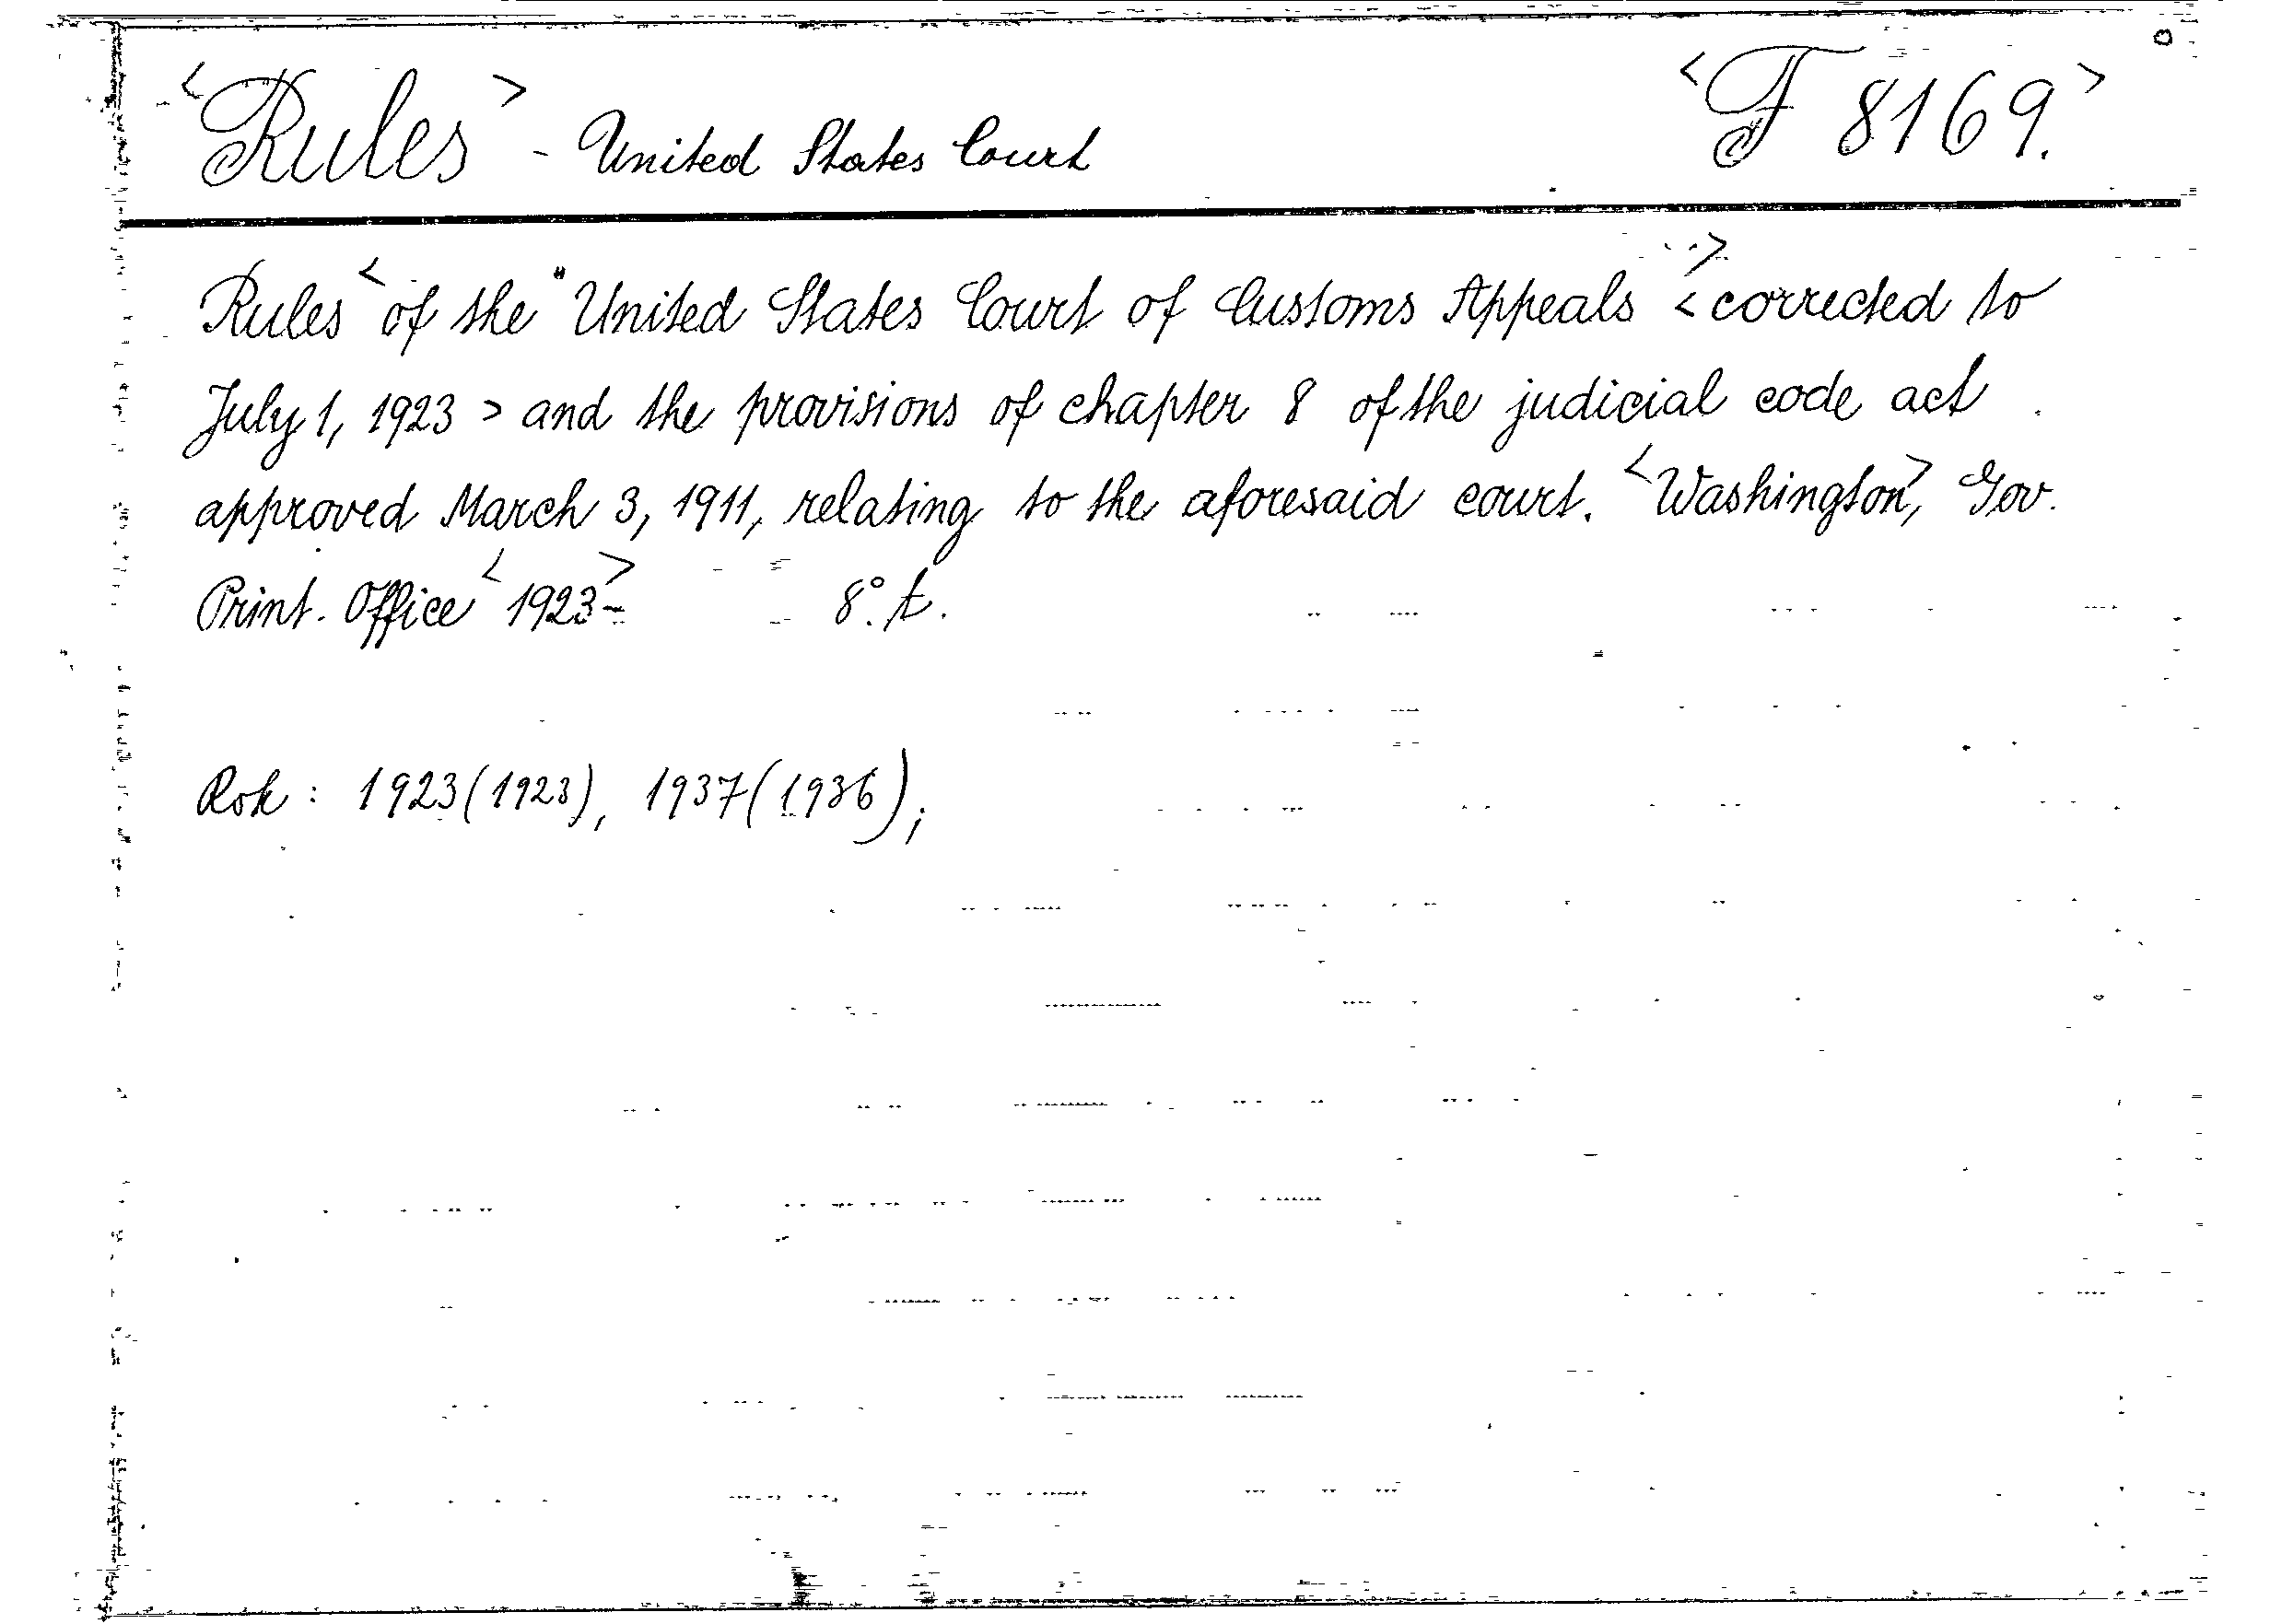 <Rules> - United States Court <F 8169.>
Rules <of the "United States Court of Customs Appeals"> <corrected to
July 1, 1923> and the provisions of chapter 8 of the judicial code act
approved March 3, 1911, relating to the aforesaid court. <Washington>, Gov.
Print. Office <1923>- 8°. t.
Rok: 1923(1923), 1937(1936);